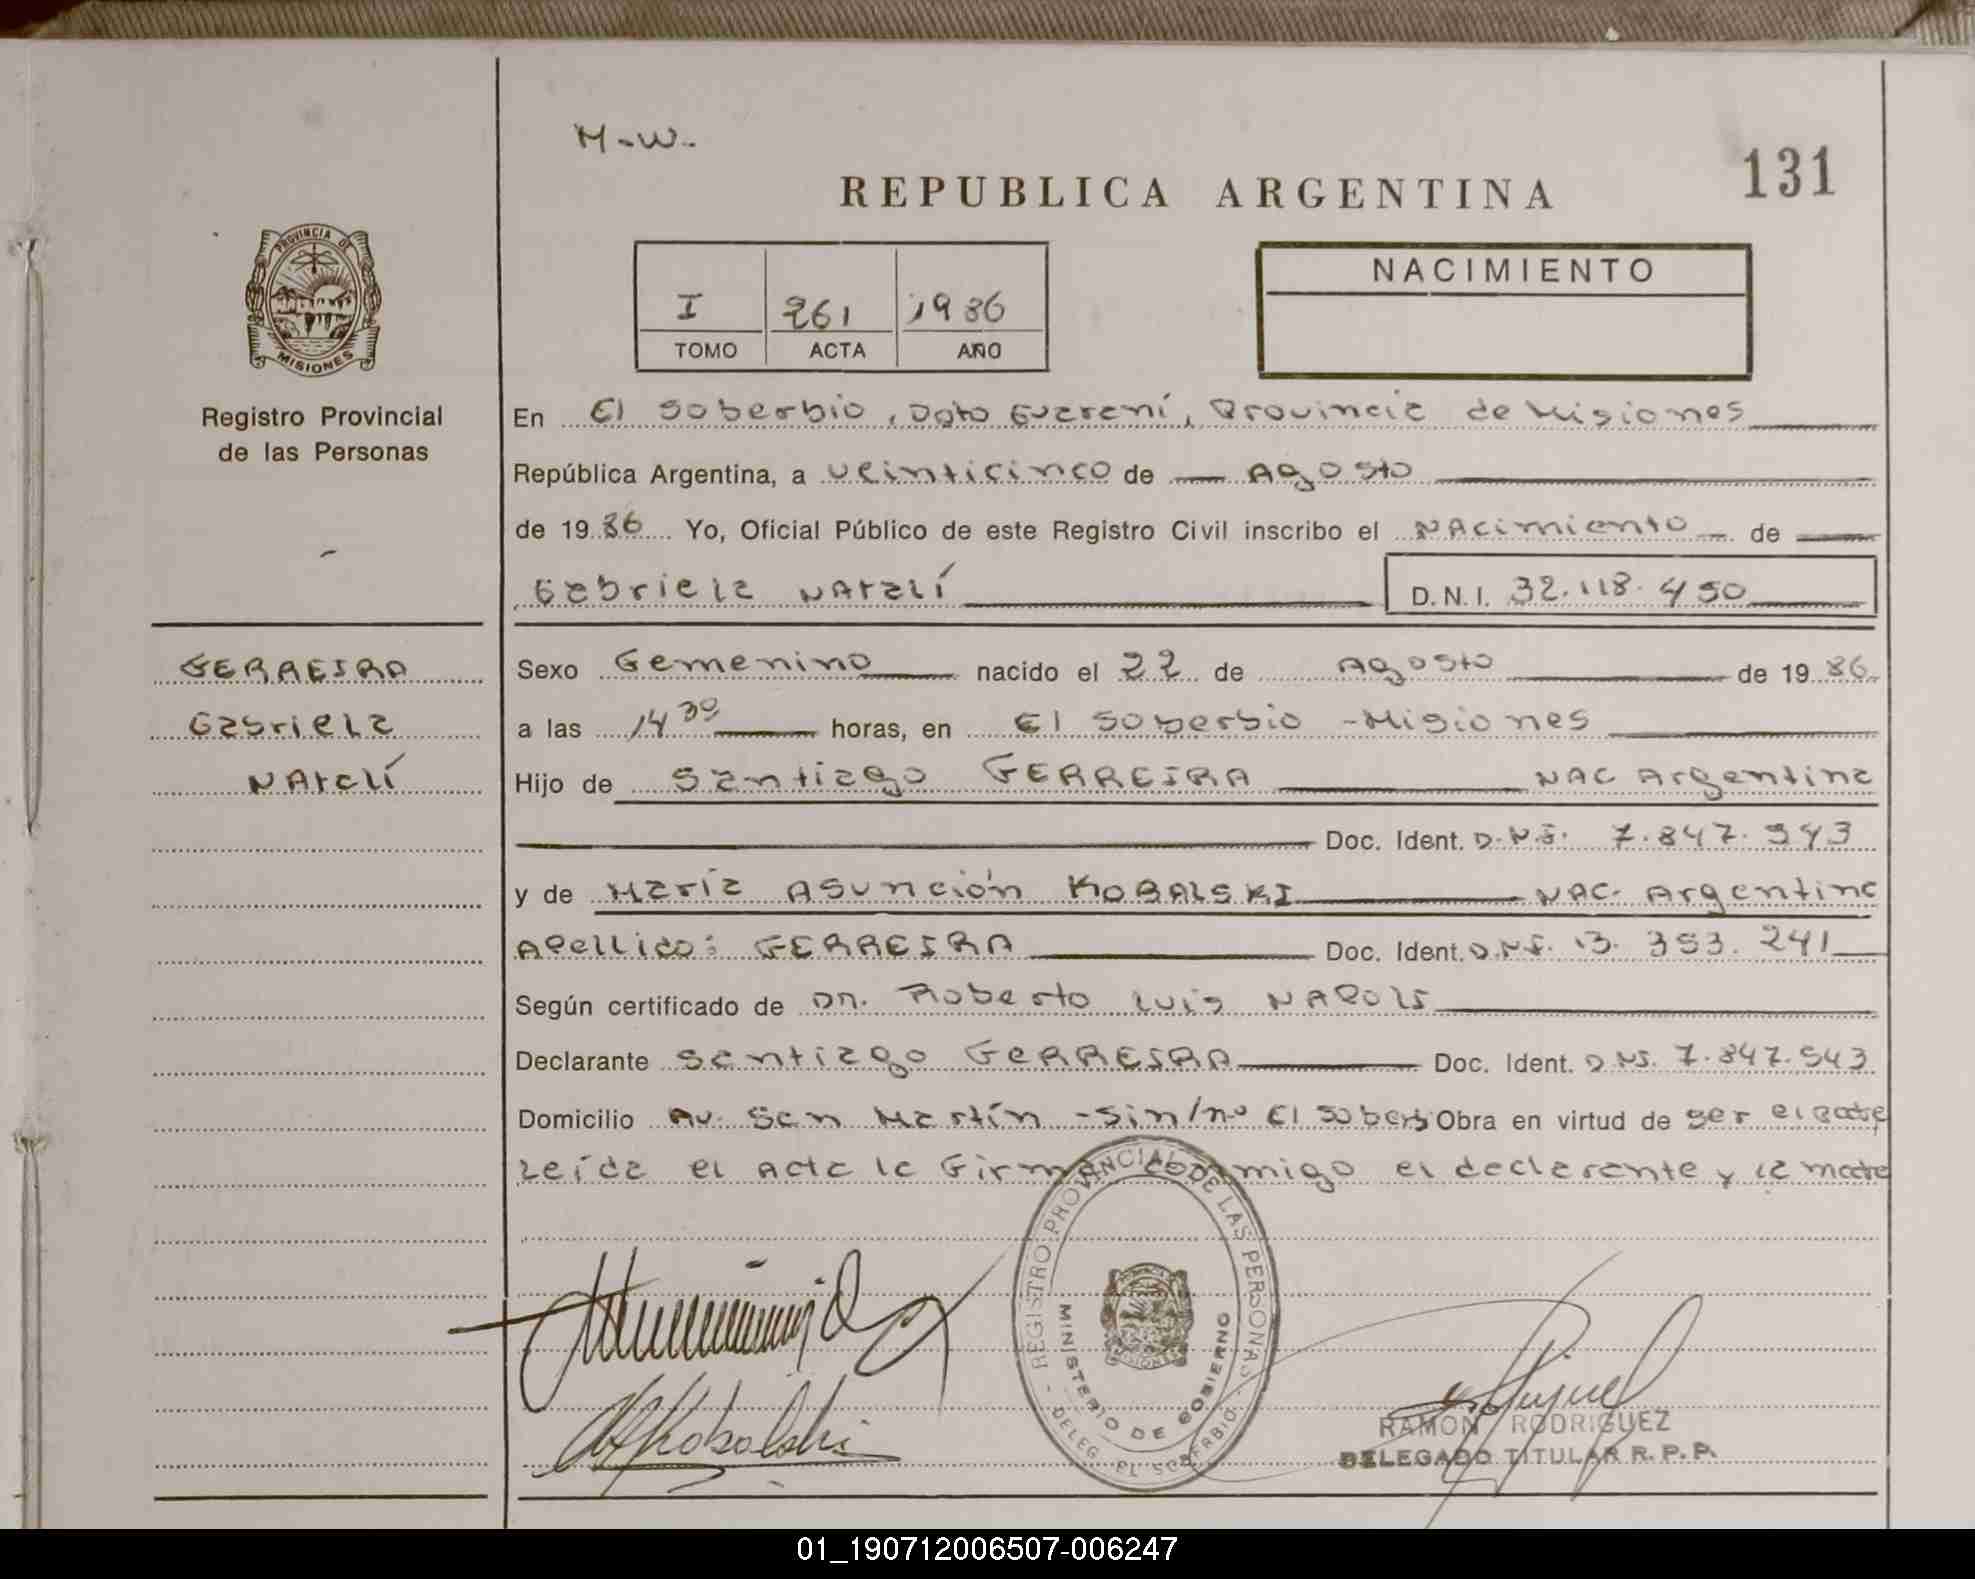 M-W-
REPUBLICA ARGENTINA
131
PROVINCIA DE
MISIONES
Registro Provincial
de las Personas
I 261 1986
TOMO ACTA AÑO
NACIMIENTO
En El Soberbio, Dpto Guaraní, Provincia de Misiones
República Argentina, a veinticinco de Agosto
de 19 86 Yo, Oficial Público de este Registro Civil inscribo el NAcimiento de
Gabriela NAtalí D.N.I. 32.118.450
FERREIRA
Gabriela
NAtalí
Sexo Femenino nacido el 22 de Agosto de 19 86
a las 14 30 horas, en El Soberbio - Misiones
Hijo de Santiago FERREIRA NAC Argentina
Doc. Ident. D.N.I. 7.847.543
y de María Asunción KOBALSKI NAC. Argentina
Apellido: FERREIRA Doc. Ident. D.N.I. 13.353.241
Según certificado de Dr. Roberto Luis NAPOLI
Declarante Santiago FERREIRA Doc. Ident. D.N.I. 7.847.543
Domicilio Av. San Martín - Sin/nº El Soberb Obra en virtud de ser el padre
Leída el Acta la Firman conmigo el declarante y la madre
REGISTRO PROVINCIAL DE LAS PERSONAS
MINISTERIO DE GOBIERNO
MISIONES
DELEG. EL SOBERBIO
Kobalski
RAMON RODRIGUEZ
DELEGADO TITULAR R.P.P.
01_190712006507-006247